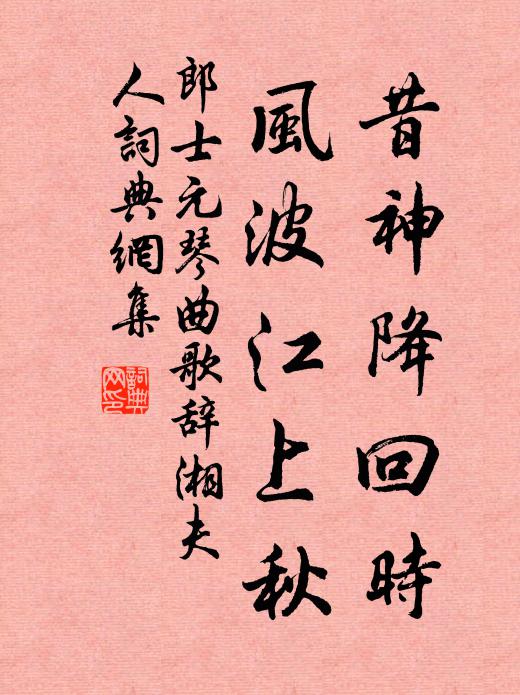 昔神降回時
風波江上秋
郎士元琴曲歌辞湘夫
人詞典網集
詞典
网印